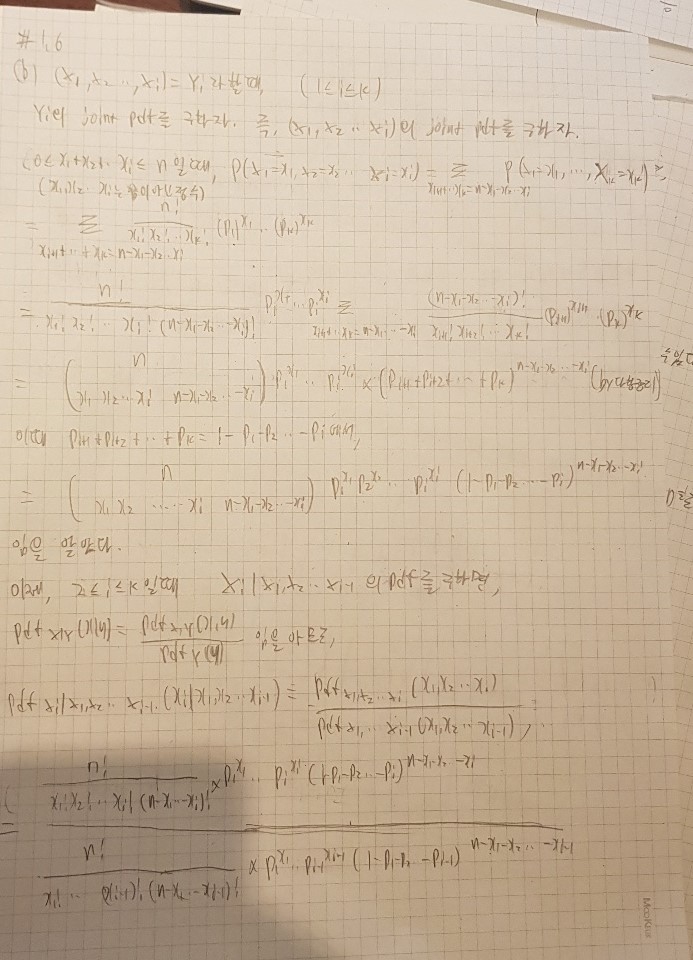 #1.6
(b) (x₁, x₂ ..., xᵢ) = Yᵢ 라 할때, (1≤i≤k)
Yᵢ의 joint pdf를 구하자. 즉, (x₁, x₂ ... xᵢ)의 joint pdf를 구하자.
(0 ≤ x₁+x₂+..xᵢ ≤ n 일때, P(X₁=x₁, X₂=x₂ ... Xᵢ=xᵢ) = Σ_{xᵢ₊₁+..xₖ=n-x₁-x₂-..xᵢ} P(X₁=x₁, ..., Xₖ=xₖ)
(x₁, x₂ .. xᵢ는 음이아닌 정수)
= Σ_{xᵢ₊₁+..+xₖ=n-x₁-x₂..xᵢ} n!/(x₁! x₂! ... xₖ!) (p₁)^{x₁} ... (pₖ)^{xₖ}
= n!/(x₁! x₂! ... xᵢ! (n-x₁-x₂-...xᵢ)!) p₁^{x₁} ... pᵢ^{xᵢ} Σ_{xᵢ₊₁+..xₖ=n-x₁-..-xᵢ} (n-x₁-x₂..-xᵢ)!/(xᵢ₊₁! xᵢ₊₂! ... xₖ!) (pᵢ₊₁)^{xᵢ₊₁} .. (pₖ)^{xₖ}
= (n / x₁ x₂ ... xᵢ n-x₁-x₂-..-xᵢ) p₁^{x₁} ... pᵢ^{xᵢ} × (pᵢ₊₁+pᵢ₊₂+...+pₖ)^{n-x₁-x₂-...-xᵢ} (by 다항정리)
이때 pᵢ₊₁+pᵢ₊₂+..+pₖ = 1-p₁-p₂..-pᵢ 이니,
= (n / x₁ x₂ ..... xᵢ n-x₁-x₂-..-xᵢ) p₁^{x₁} p₂^{x₂} ... pᵢ^{xᵢ} (1-p₁-p₂...-pᵢ)^{n-x₁-x₂..-xᵢ}
임을 얻는다.
이제, 2≤i≤k 일때 Xᵢ|x₁, x₂ .. xᵢ₋₁ 의 pdf를 구하면,
pdf_{X|Y}(x|y) = pdf_{X,Y}(x,y)/pdf_Y(y) 임을 이용,
pdf_{Xᵢ|X₁,X₂...Xᵢ₋₁}(xᵢ|x₁,x₂...xᵢ₋₁) = pdf_{X₁,X₂...Xᵢ}(x₁,x₂...xᵢ)/pdf_{X₁...Xᵢ₋₁}(x₁,x₂...xᵢ₋₁),
= n!/(x₁! x₂! ... xᵢ! (n-x₁...-xᵢ)!) × p₁^{x₁} ... pᵢ^{xᵢ} (1-p₁-p₂..-pᵢ)^{n-x₁-x₂..-xᵢ}
n!/(x₁! ... (xᵢ₋₁)! (n-x₁-..-xᵢ₋₁)!) × p₁^{x₁} .. pᵢ₋₁^{xᵢ₋₁} (1-p₁-p₂..-pᵢ₋₁)^{n-x₁-x₂...-xᵢ₋₁}